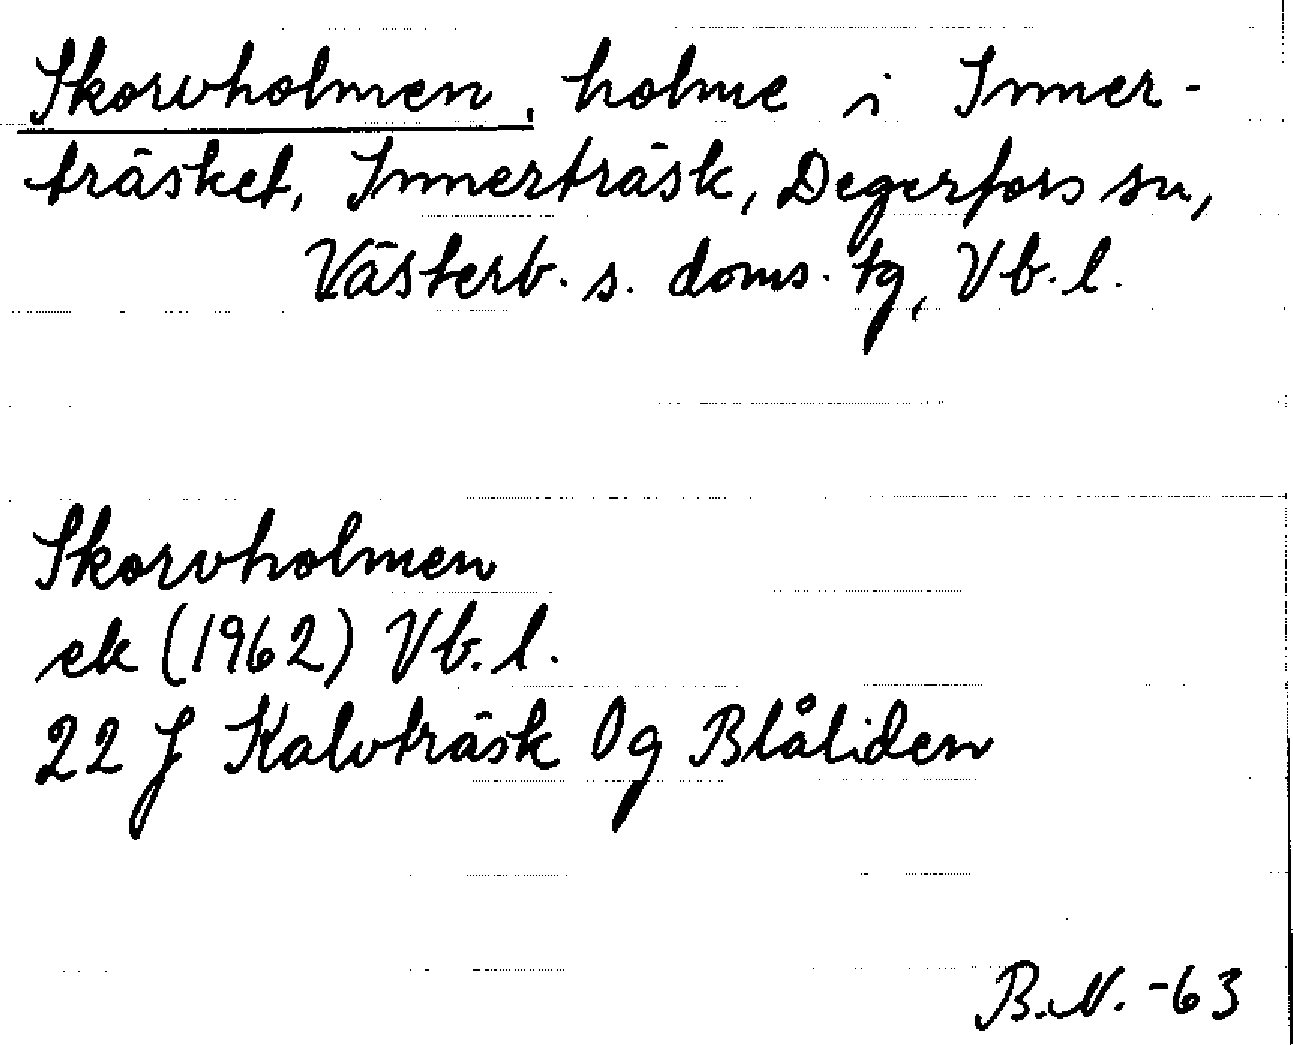 Skorvholmen, holme i Inner-
träsket, Innerträsk, Degerfors sn,
Västerb. s. doms. tg, Vb. l.
Skorvholmen
ek (1962) Vb. l.
22 J Kalvträsk 0g Blåliden
B.N. -63